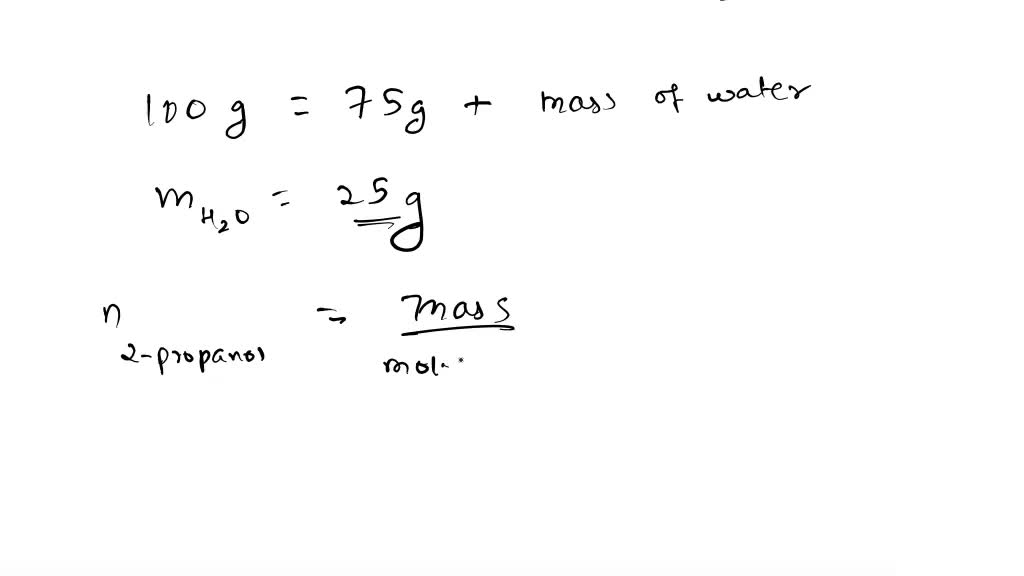 100 g = 75g + mass of water
m H₂O = 25 g
n 2-propanol = mass
mol.